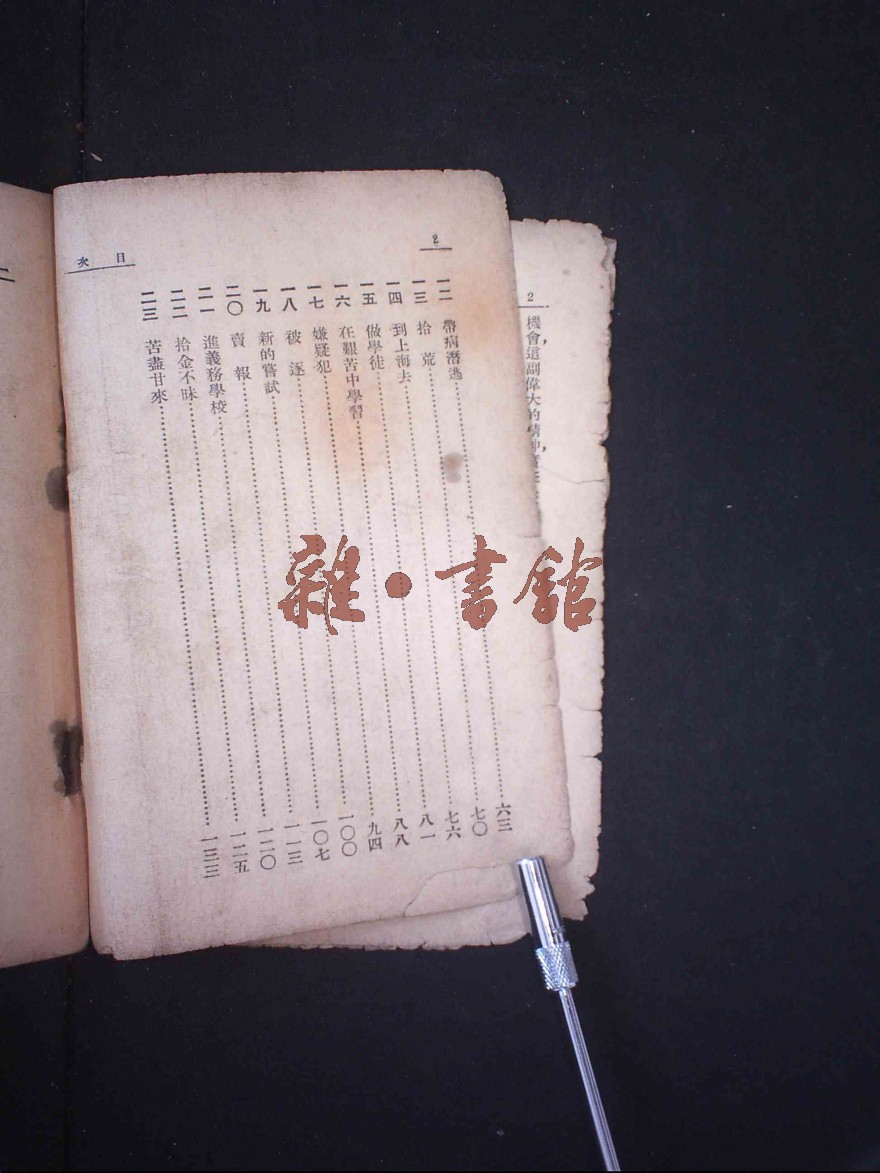 2
機會，這副偉大的精神，
2
目次
一二 帶病潛逃……六三
一三 拾荒……七〇
一四 到上海去……七六
一五 做學徒……八一
一六 在艱苦中學習……八八
一七 嫌疑犯……九四
一八 被逐……一〇〇
一九 新的嘗試……一〇七
二〇 賣報……一一三
二一 進義務學校……一二〇
二二 拾金不昧……一二五
二三 苦盡甘來……一三三
雜·書館